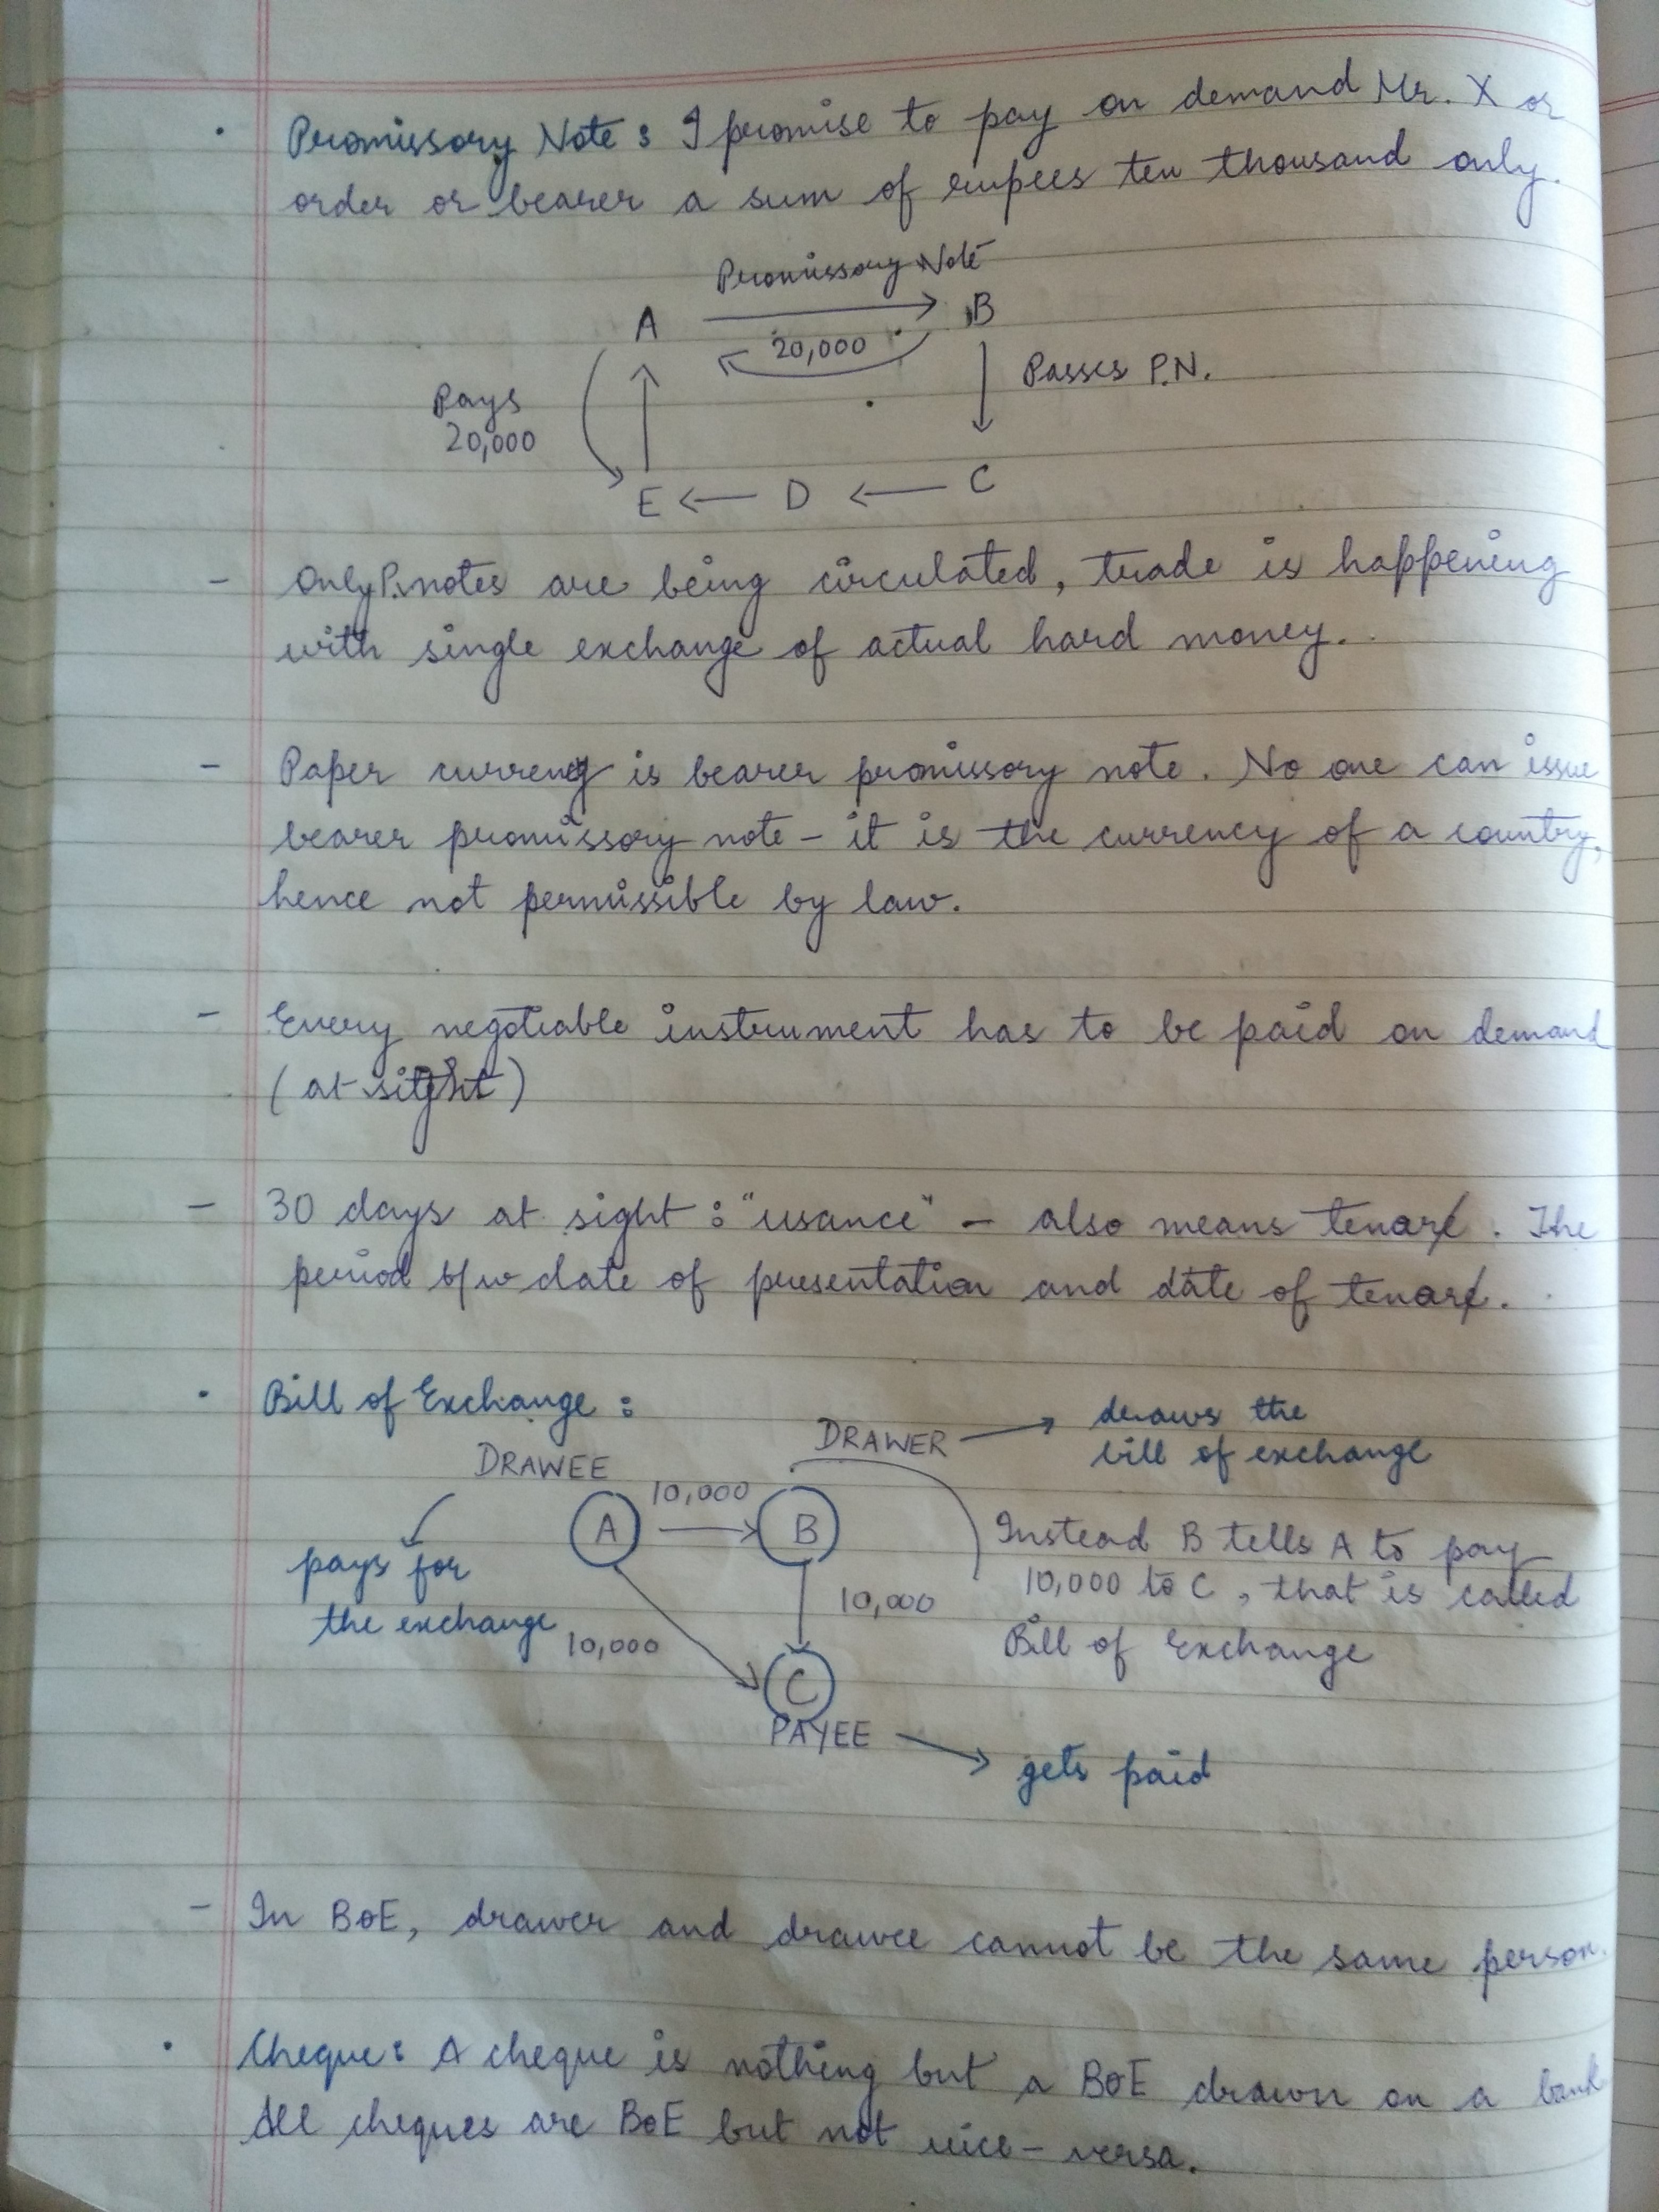 • Promissory Note : I promise to pay on demand Mr. X or
order or bearer a sum of rupees ten thousand only.
Promissory Note
A
B
20,000
Passes P.N.
Pays
20,000
E
D
C
- Only P.notes are being circulated, trade is happening
with single exchange of actual hard money.
- Paper currency is bearer promissory note. No one can issue
bearer promissory note - it is the currency of a country,
hence not permissible by law.
- Every negotiable instrument has to be paid on demand
(at sight)
- 30 days at sight : "usance" - also means tenor. The
period b/w date of presentation and date of tenor.
• Bill of Exchange :
DRAWER
draws the
bill of exchange
DRAWEE
10,000
A
B
Instead B tells A to pay
pays for
10,000 to C, that is called
the exchange
10,000
10,000
Bill of Exchange
C
PAYEE
gets paid
- In BoE, drawer and drawee cannot be the same person.
• Cheque : A cheque is nothing but a BoE drawn on a bank
All cheques are BoE but not vice-versa.